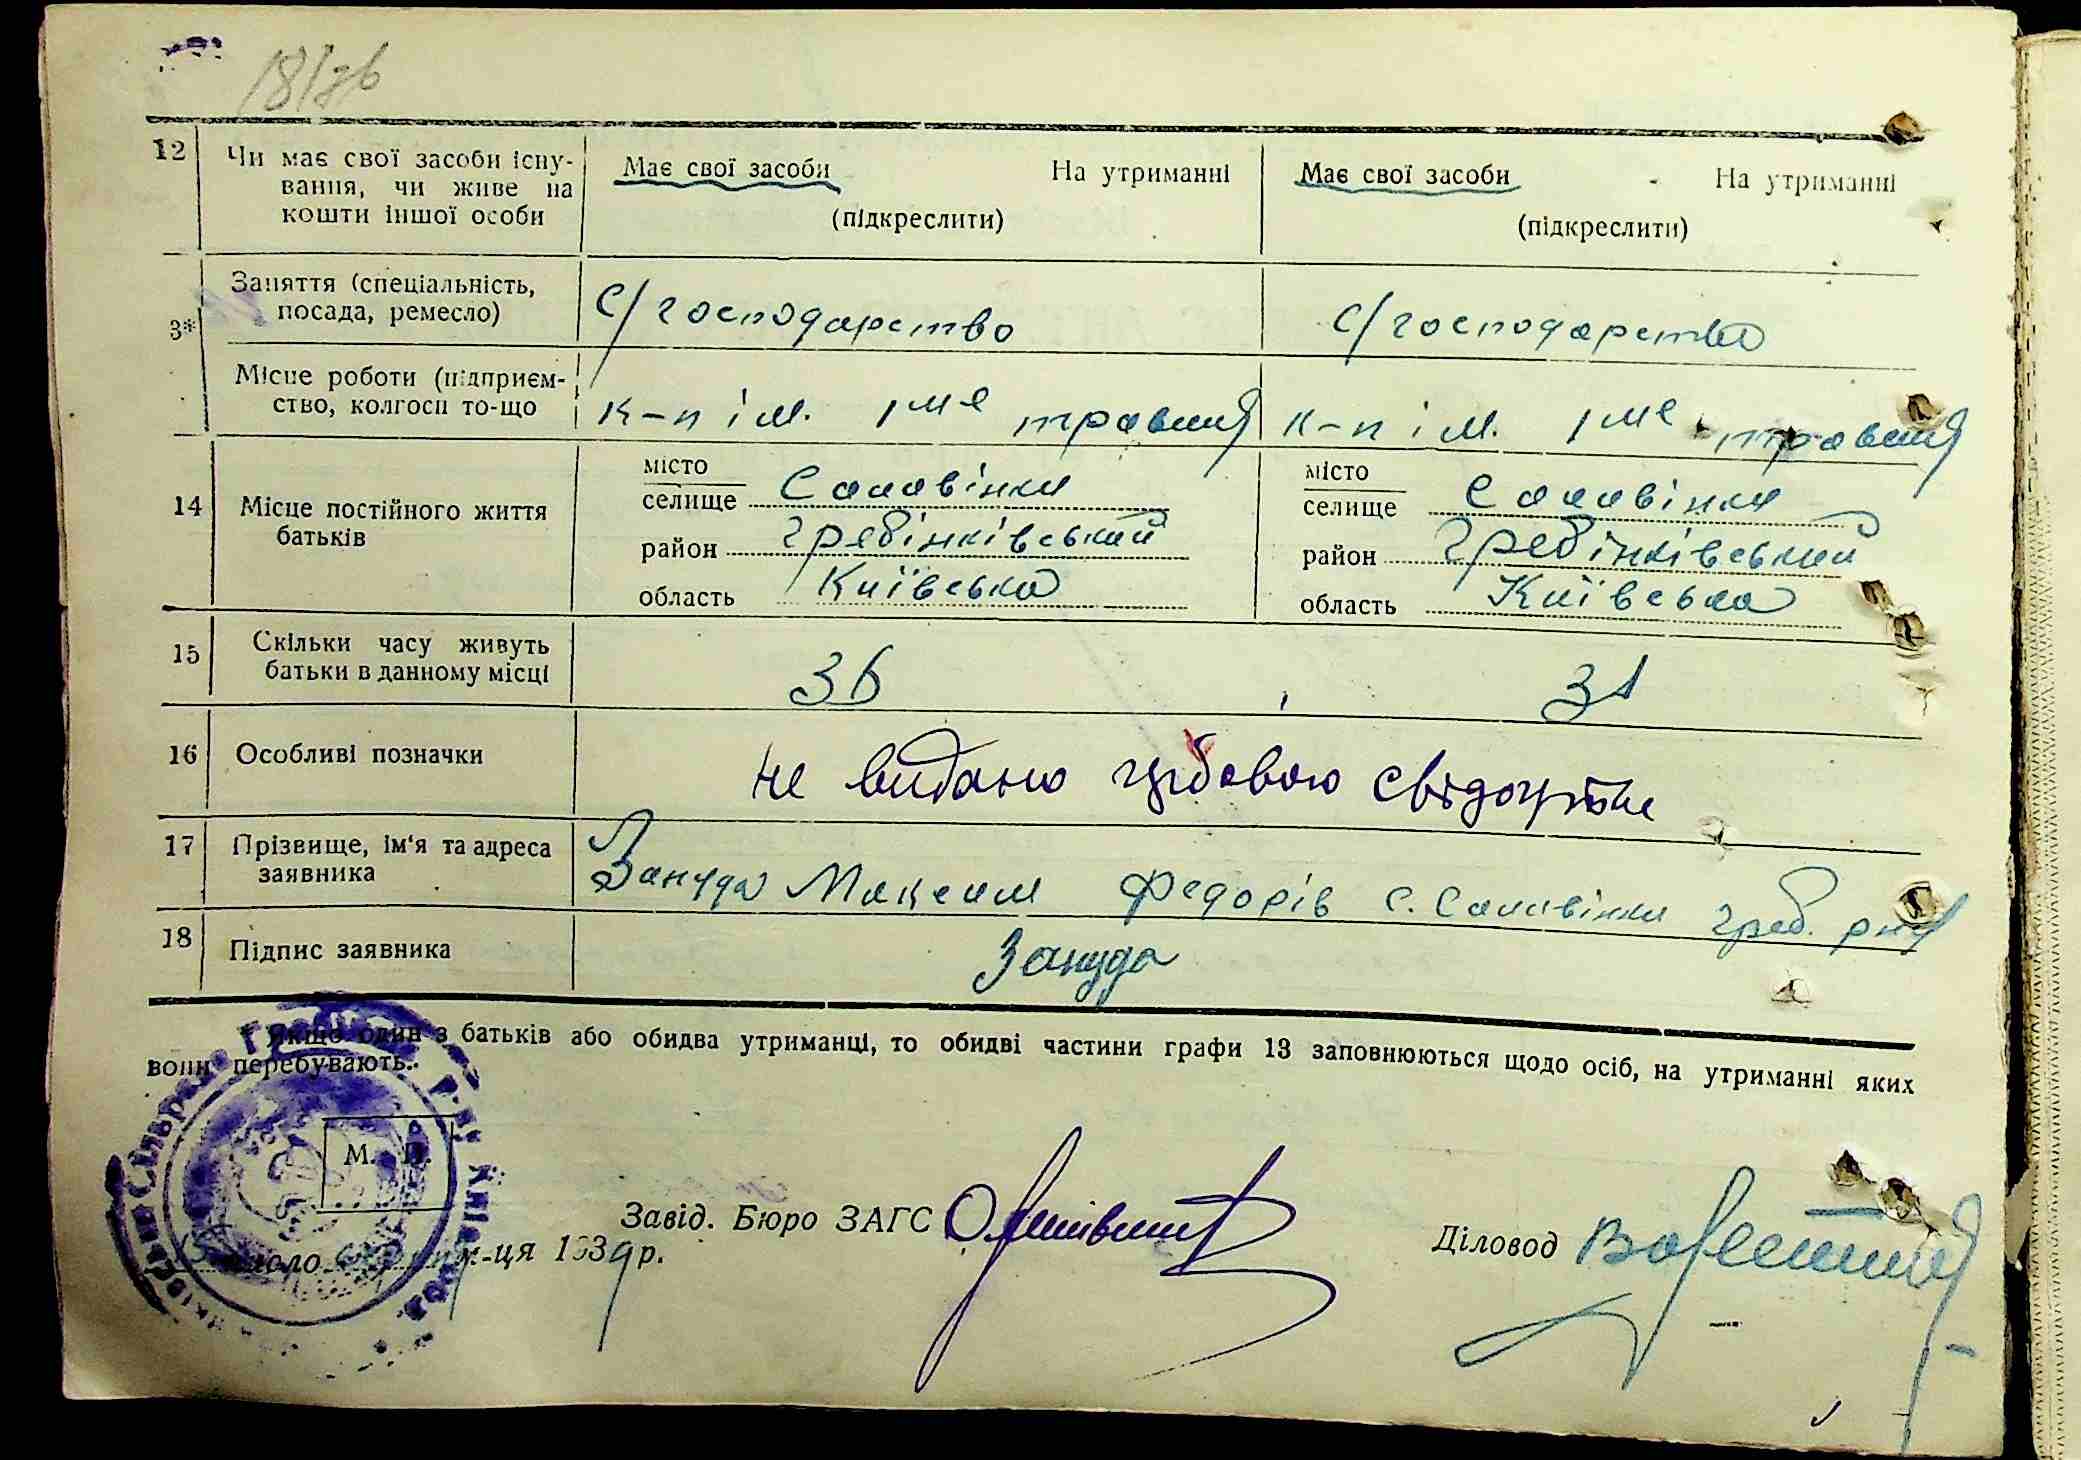 18/зв
12 Чи має свої засоби існу-
вання, чи живе на
кошти іншої особи
Має свої засоби На утриманні
(підкреслити)
Має свої засоби На утриманні
(підкреслити)
3*
Заняття (спеціальність,
посада, ремесло)
С/господарство
с/господарство
Місце роботи (підприєм-
ство, колгосп то-що
к-п ім. 1го травня
к-п ім. 1го травня
14 Місце постійного життя
батьків
місто
селище Саливінки
район Гребінківський
область Київська
місто
селище Саливінки
район Гребінківський
область Київська
15 Скільки часу живуть
батьки в данному місці
36
31
16 Особливі позначки
не видано свідоцтво
17 Прізвище, ім'я та адреса
заявника
Зануда Максим Федорів с. Саливінки Греб. р-ну
18 Підпис заявника
Зануда
* Якщо один з батьків або обидва утриманці, то обидві частини графи 13 заповнюються щодо осіб, на утриманні яких
вони перебувають.
М. П.
число м-ця 1939 р.
Завід. Бюро ЗАГС
Діловод